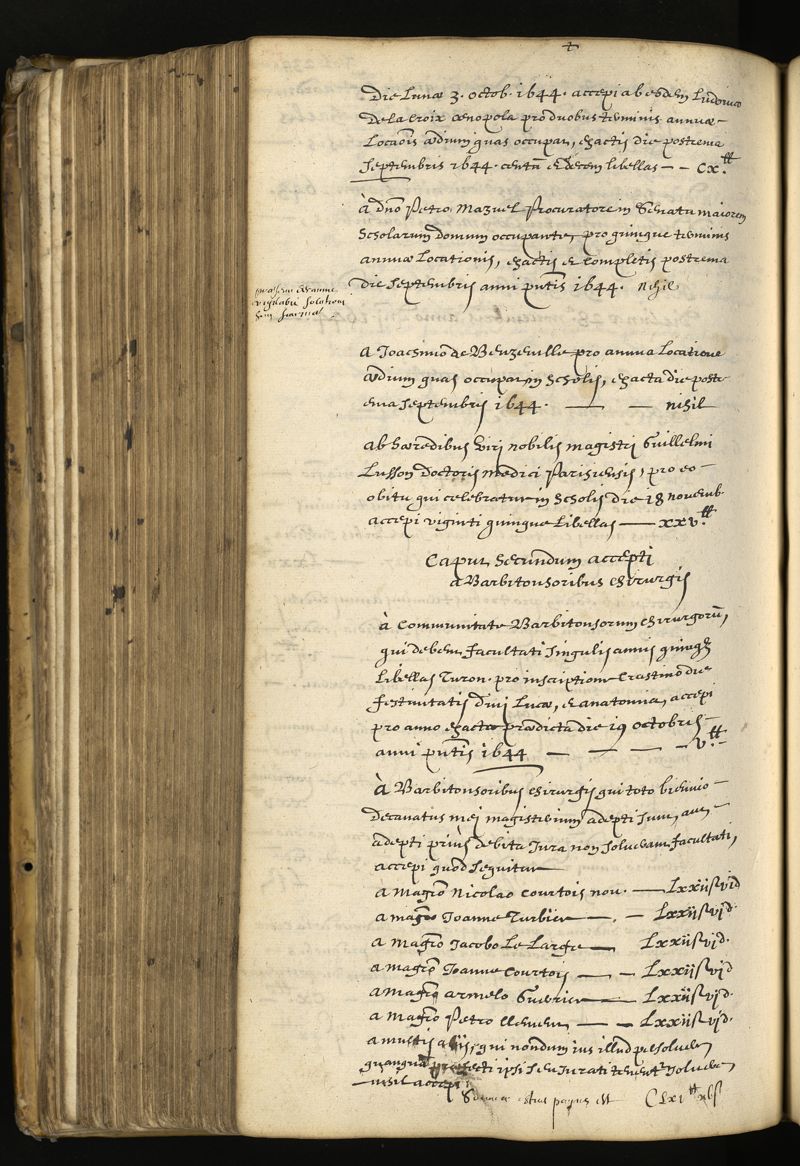 +
Die Lunæ 3. octob. 1644. accepi ab eodem Ludovico
De la Croix œnopola pro duobus terminis annuæ
Locaõis ædium quas occupat, exactis die postrema
Septembris 1644. centũ & decem libellas — — CX.tt
à dño Petro Mazuel Procuratore in Senatu maiorem
Scholarum domum occupante, pro quinque terminis
annuæ Locationis, exactis & completis postrema
die Septembris anni pñtis 1644. Nihil
a Joachimo de Benzeville pro annua Locatione
ædium quas occupat in Scholis, exacta die postr
ema Septembris 1644. — — nihil
ab hæredibus viri nobilis magistri Guillelmi
Lusson Doctoris medici Parisiensis, pro eo
obitu qui celebratur in Scholis die 18 novemb.
accepi viginti quinque Libellas — XXV.tt
Caput Secundum accepti
a Barbitonsoribus chirurgis
à Communitate Barbitonsorum chirurgorũ,
qui debent facultati singulis annis quinq3
Libellas Turon. pro inscriptione crastino die
festivitatis divi Lucæ, & anatomia, accepi
pro anno exacto prædicta die 19 octobris
anni pñtis 1644 — — — — V.tt
à Barbitonsoribus chirurgis qui toto biennio
decanatus mei magisterium adepti sunt, aut
adepti priùs debita Jura non solverant facultati,
accepi quod sequitur
a magrõ Nicolao Courtois nov. — LXXIIs VId
a magrõ Joanne Turbier — . — LXXIIs VJd.
a Magrõ Jacobo Le Large — LXXIIs VJd.
a magrõ Joanne Courtois — — LXXIIs VJd
a Magrõ armelo Guerier — LXXIIs VJd.
a Magrõ Petro — — LXXIIs VJd.
a multis aliis, qui nondum ius illud persolverunt
quanquã ipsi seu Jurati tenentr solvere
nihil accepi
Summa istius paginæ est CLXI tt